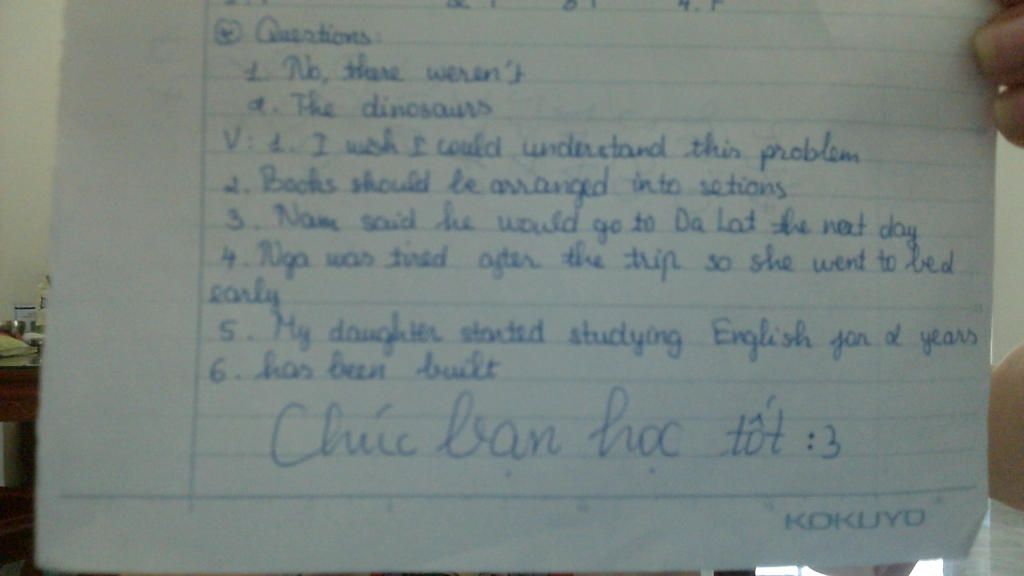 ⊛ Questions:
1. No, there weren't
2. The dinosaurs
V: 1. I wish I could understand this problem
2. Books should be arranged into setions
3. Nam said he would go to Da Lat the next day
4. Nga was tired after the trip so she went to bed
early
5. My daughter started studying English for 2 years
6. has been built
Chúc bạn học tốt :3
KOKUYO